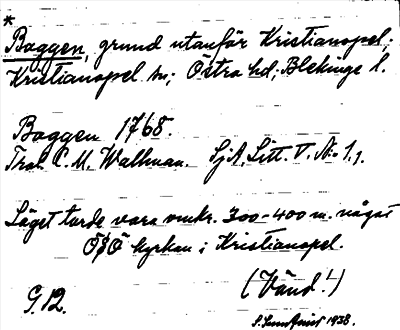 *
Baggen, grund utanför Kristianopel;
Kristianopel sn; Östra hd; Blekinge l.
Baggen 1768.
Trol. C. M. Wallman. SjA. Litt. V. No 1.
Läget torde vara omkr. 300-400 m. något
ÖSÖ kyrkan i Kristianopel.
(Vänd!)
G. 12.
1938.